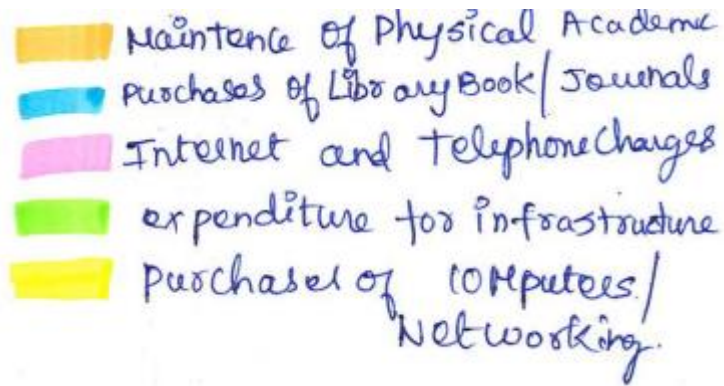 Maintence of Physical Academic
Purchases of Library Book/Journals
Internet and Telephone Charges
expenditure for infrastructure
Purchases of COMputers/
Networking.